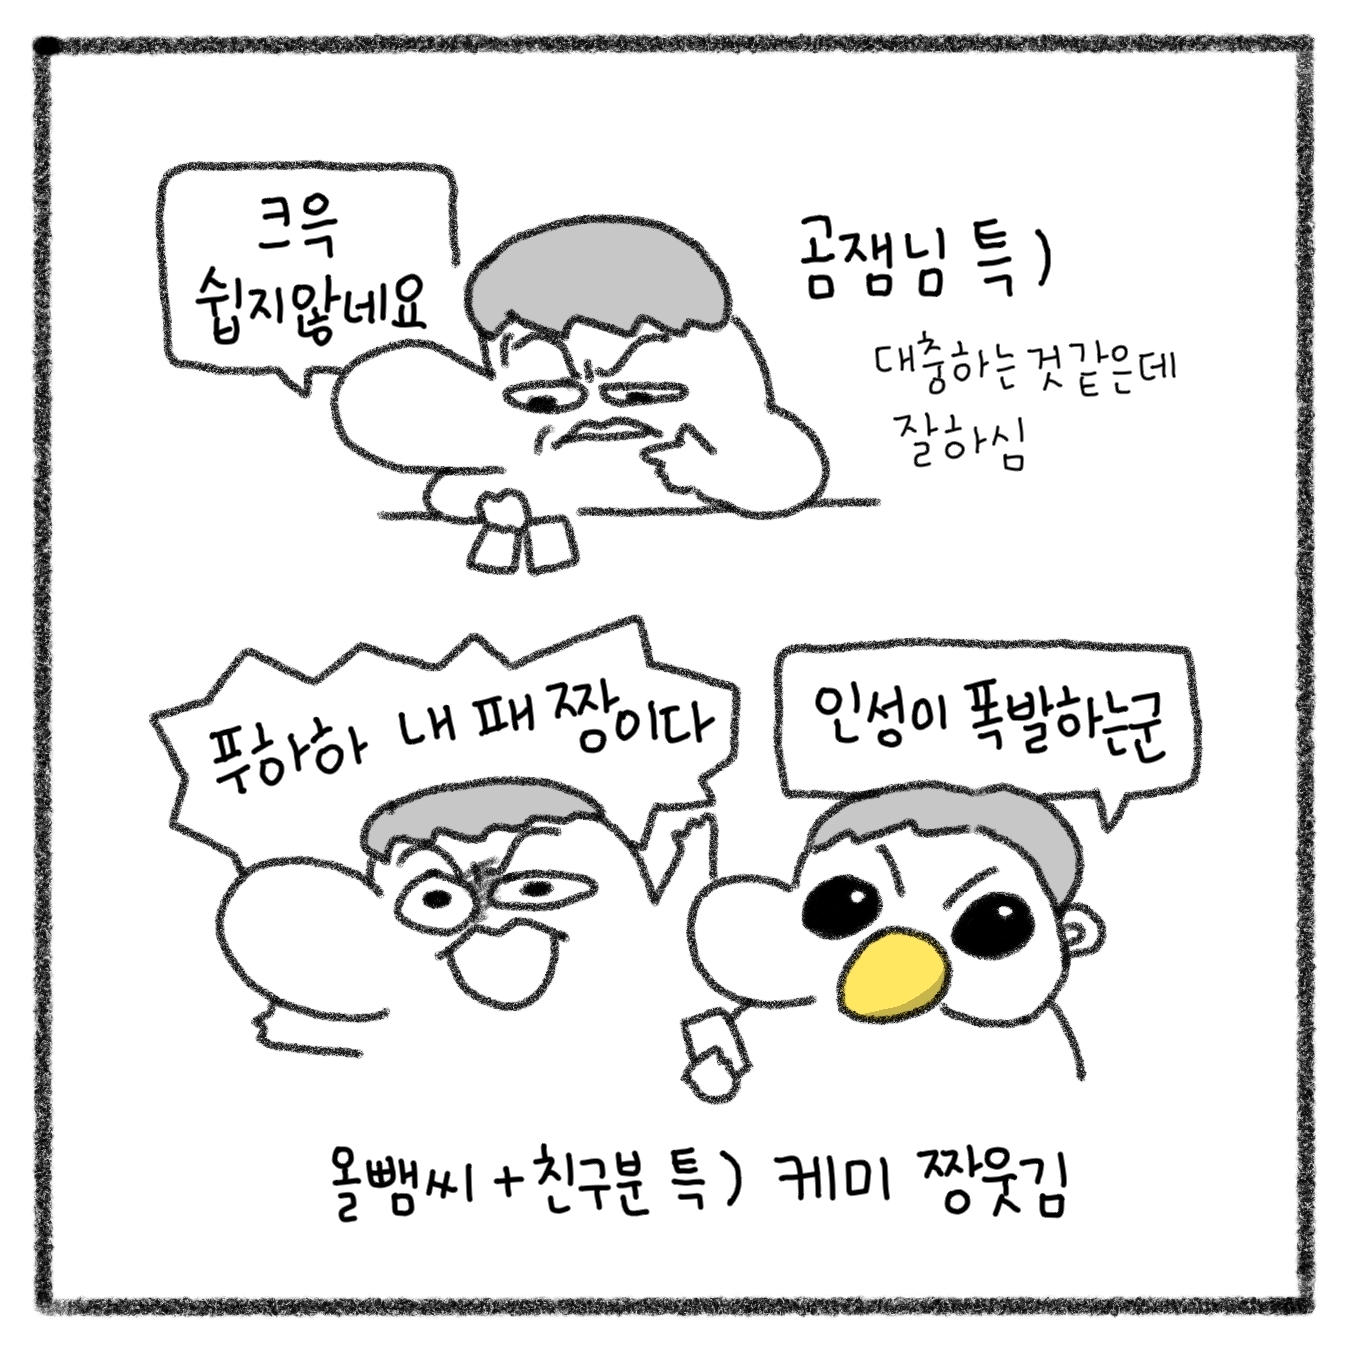 크윽
쉽지않네요
곰잼님 특)
대충하는 것 같은데
잘하심
푸하하 내 패 짱이다
인성이 폭발하는군
올뺌씨 + 친구분 특) 케미 짱웃김